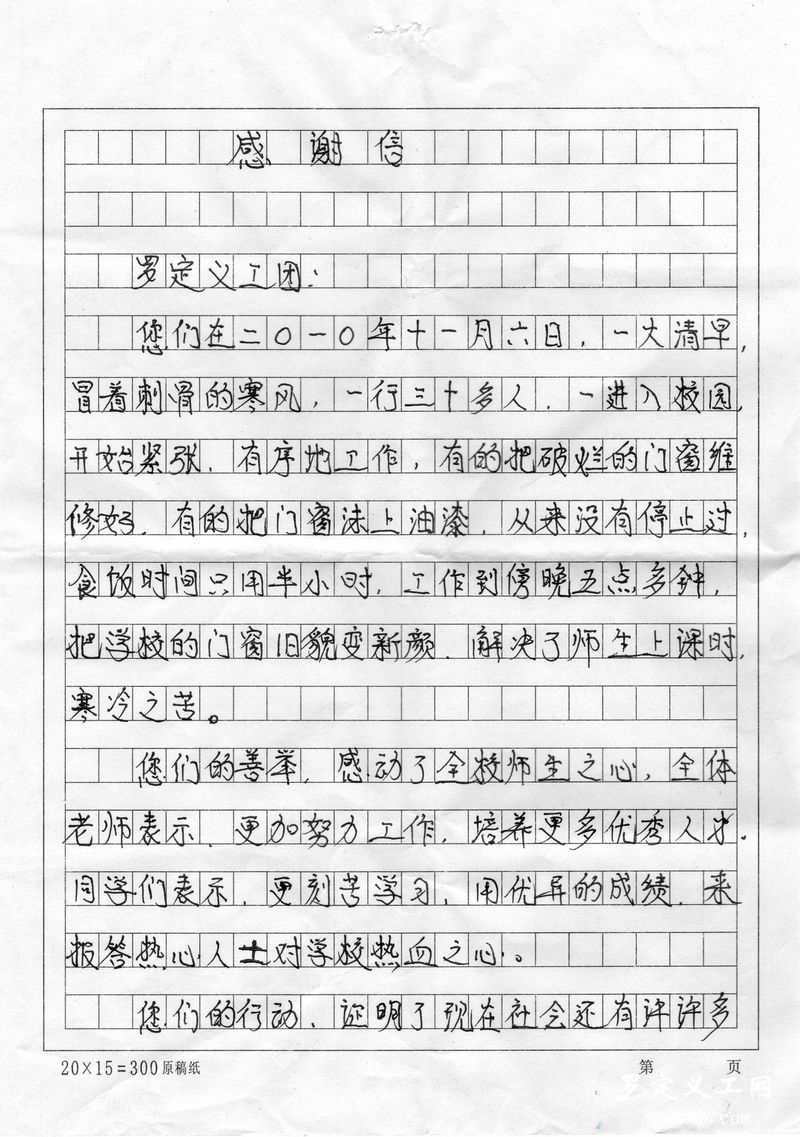 感谢信
罗定义工团：
您们在二〇一〇年十一月六日，一大清早，
冒着刺骨的寒风，一行三十多人，一进入校园，
开始紧张、有序地工作，有的把破烂的门窗维
修好、有的把门窗沫上油漆，从来没有停止过，
食饭时间只用半小时，工作到傍晚五点多钟，
把学校的门窗旧貌变新颜、解决了师生上课时，
寒冷之苦。
您们的善举，感动了全校师生之心，全体
老师表示、更加努力工作，培养更多优秀人才。
同学们表示、更刻苦学习，用优异的成绩、来
报答热心人士对学校热血之心。
您们的行动、证明了现在社会还有许许多
20×15=300原稿纸 第 页
罗定义工网